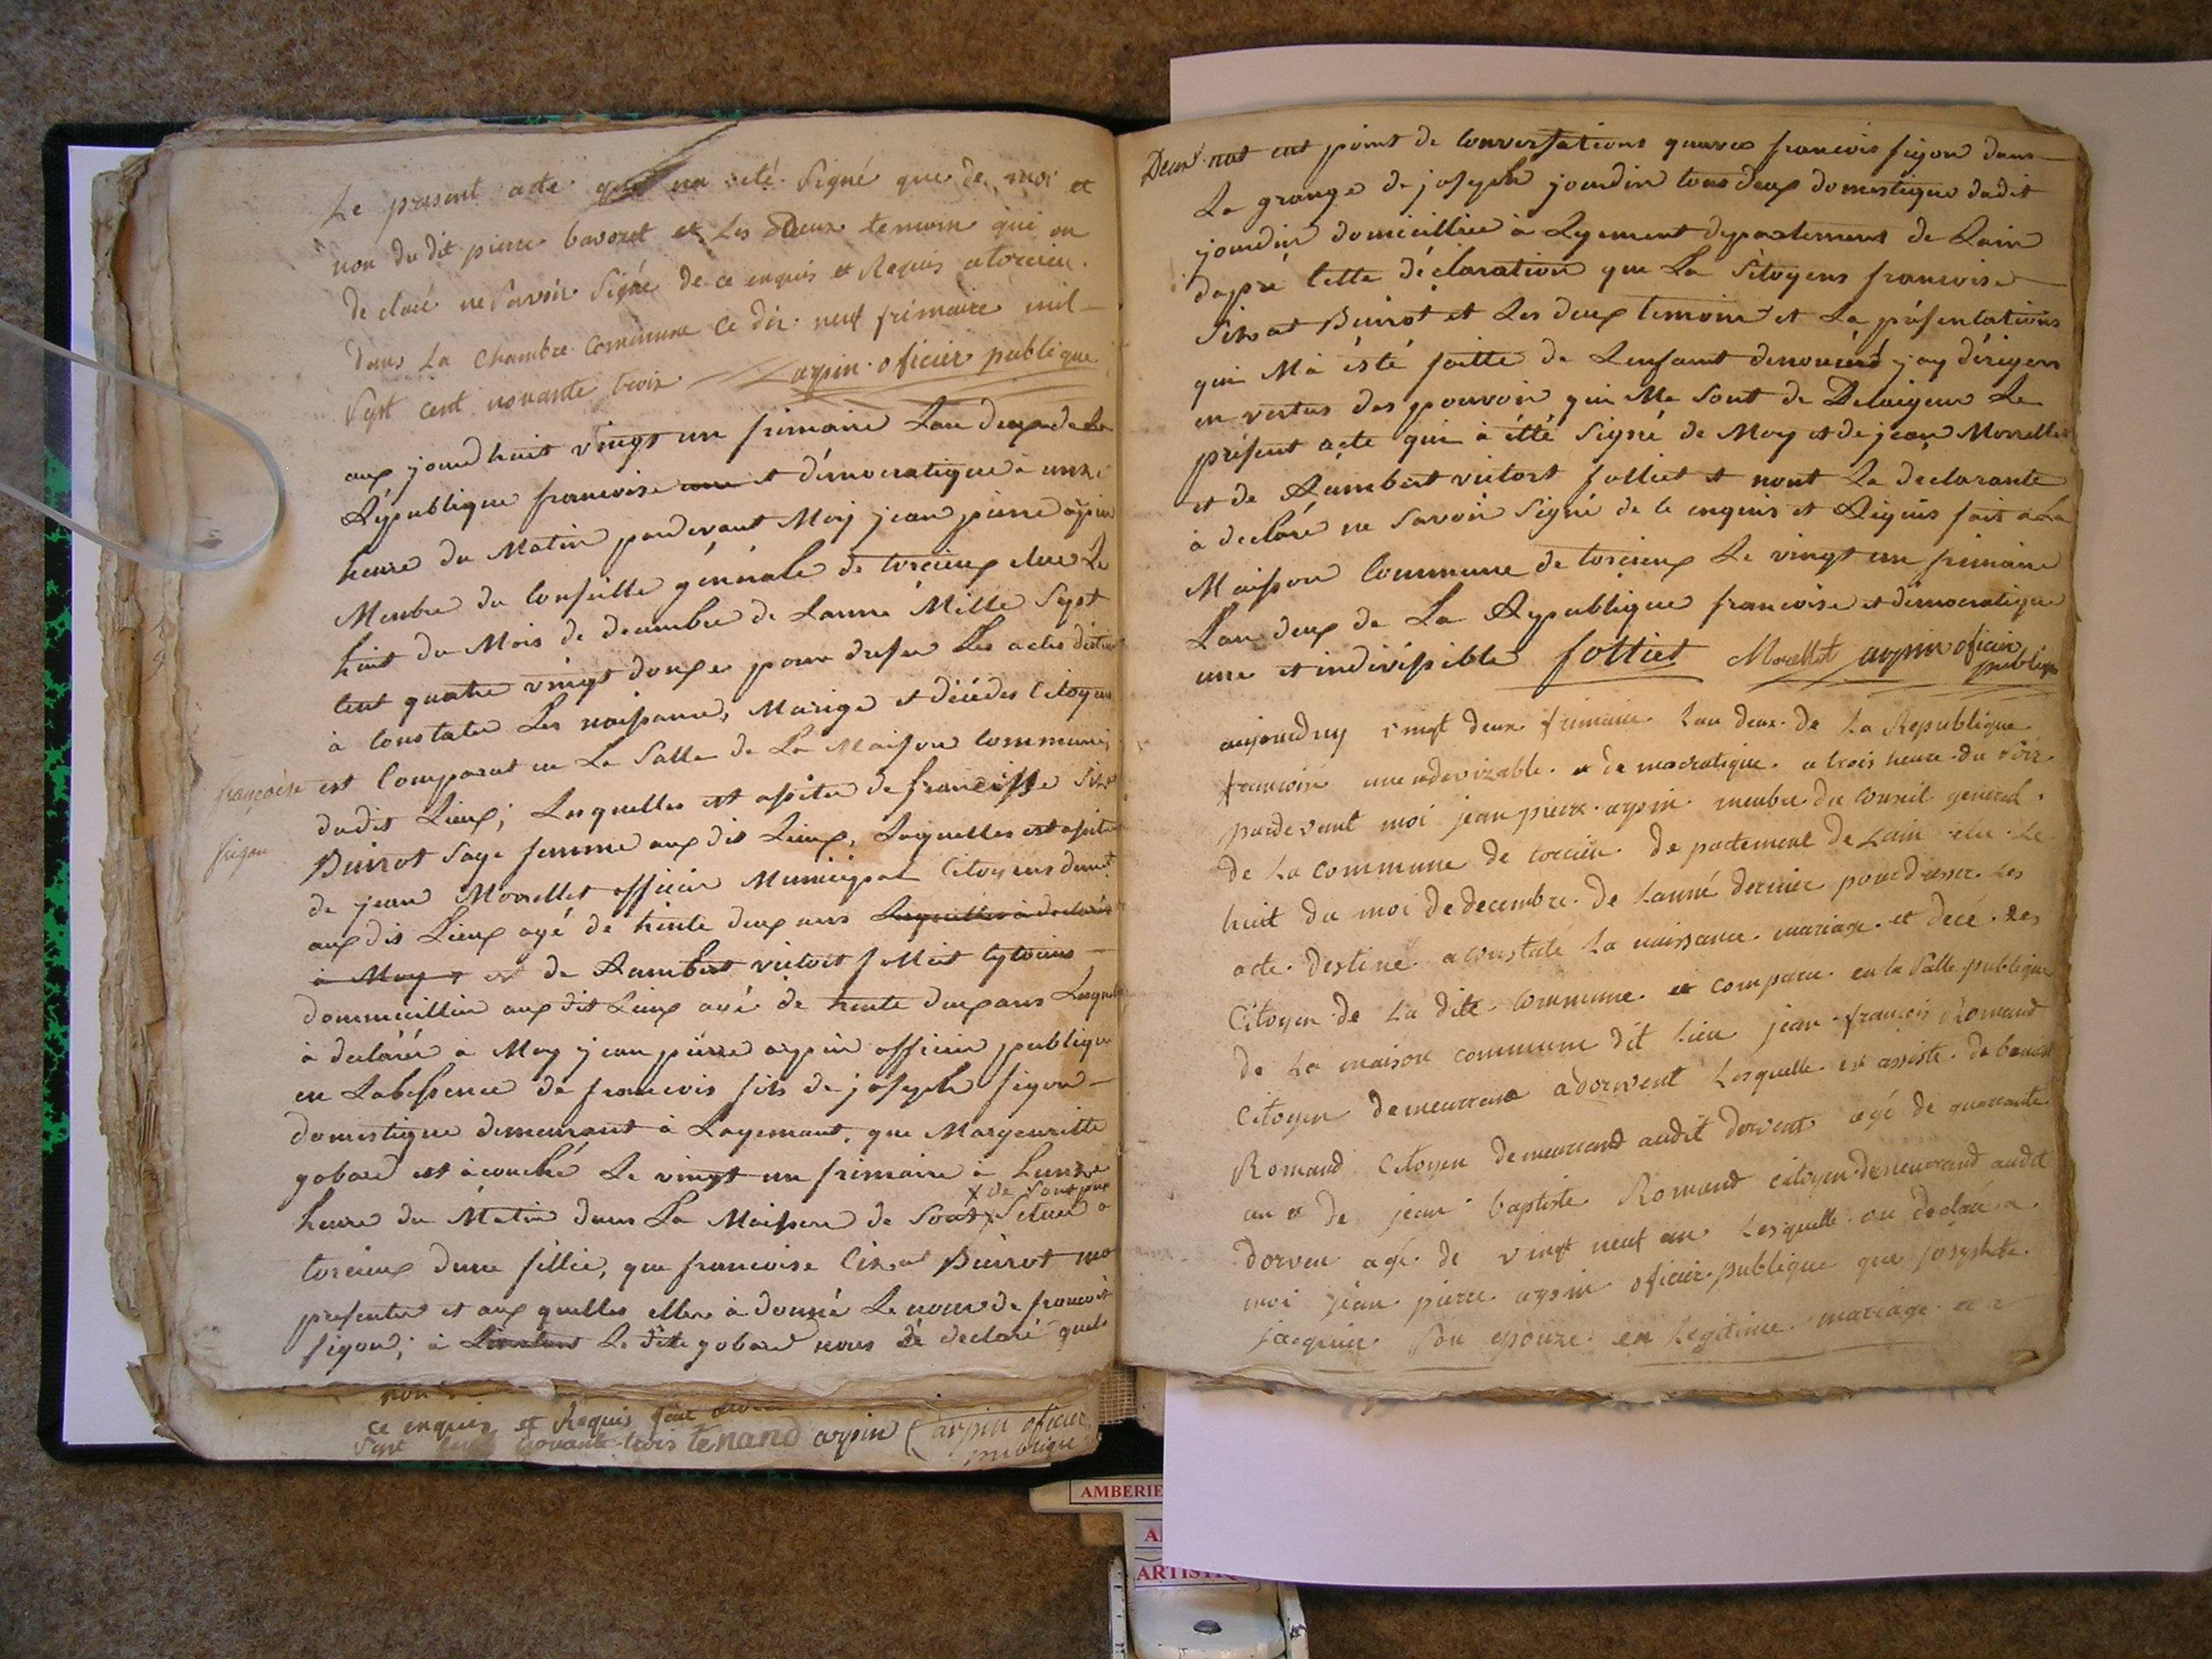 Le present acte qui na été Signé que de moi et
non du dit pierre bavozet et Les Deux temoin qui on
declaré ne Savoir Signé de ce enquis et Requis a torcieu.
dans La Chambre Commune Ce dix neuf frimaire mil
Sept cent nonante trois arpin oficier publique
aux jourdhuit vingt un frimaire Lan deux de La
République francoise une et démocratique à unze
heure du Matin pardevant Moy jean pierre arpin
Menbre du Conseille générale de torcieux elue Le
huit du Mois de decembre de Lanné Mille Sept
Cent quatre vingt douze pour dresser Les actes destiné
à Constater Les naissance, Mariage et décèdes Citoyens
est Comparut en La Salle de La Maison Commune
françoise
figon
dudit Lieux; Lesquelles est asiter de francoisse
Buirot Sage femme aux dit Lieux, Laquelles est asiter
de jean Morrellet officier Municipal Citoyens demt
aux dis Lieux agé de trente deux ans Lesquelles à declaré
à Moy et de Rambert victort folliet
dommicillier aux dit Lieux agé de trente deux ans Lesquelle
à declarér à Moy jean pierre arpin officier publique
en Labessence de francois fils de joseph figon
domestique demeurant à Layemant, que Margeuritte
gobare est àcouché Le vingt un frimaire à Lunze
heure du Mátin dans La Maison de Situee a
torcieux dune fillie, que francoise Buirot
presenter et aux quelles elles à donné Le nom de francoise
figon; à Ladite gobare nous dé declaré quels
ce enquis et Requis
Sept cent nonante trois tenand arpin arpin oficier
publique
Deux not eut point de Conversations quavec francois figon dans
La grange de joseph jourdin tous deux domestique dudit
jourdin domicilliée à Leyement departement de Lain
dapré Cette déclaration que La Sitoyens francoise
Buirot et Les deux temoins et La présentations
qui Ma ésté faitte de Lenfant denoméré jay dérigers
en vertus des pouvoir qui Me Sont de Delaigeur Le
présent acte qui à étté Signé de Moy et de jean Morrellet
et de Rambert victort folliet et nont La déclarante
à declaré ne Savoir Signé de Ce enquis et Requis fait à La
Maison Commune de torcieux Le vingt un frimaire
Lan deux de La Republique francoise et démocratique
une et indivissible folliet Morellet arpin oficier
publique
aujourduy vingt deux frimaire Lan deux de La Republique
francoise une edevizable et democratique a trois heure du soir
pardevent moi jean pierre arpin menbre du Conseil general
de La Commune de torcieu departement de Lain élu Le
huit du moi de decembre de Lanné dernier pour dresser Les
acte destiné a constaté La naissance mariage et decé des
Citoyen de La dite Commune et comparu en la Salle publique
de La maison commune dit Lieu jean françois Romand
Citoyen demeurrend adorvent Lesquelle est assiste de
Romand Citoyen demeurrend audit dorvent agé de quarrante
an et de jean baptiste Romand citoyen demeurrand audit
dorven agé de vingt neuf an Lesquelle on declaré a
moi jean pierre arpin oficier publique que josephte
jacquin Son epouze en Legitime mariage